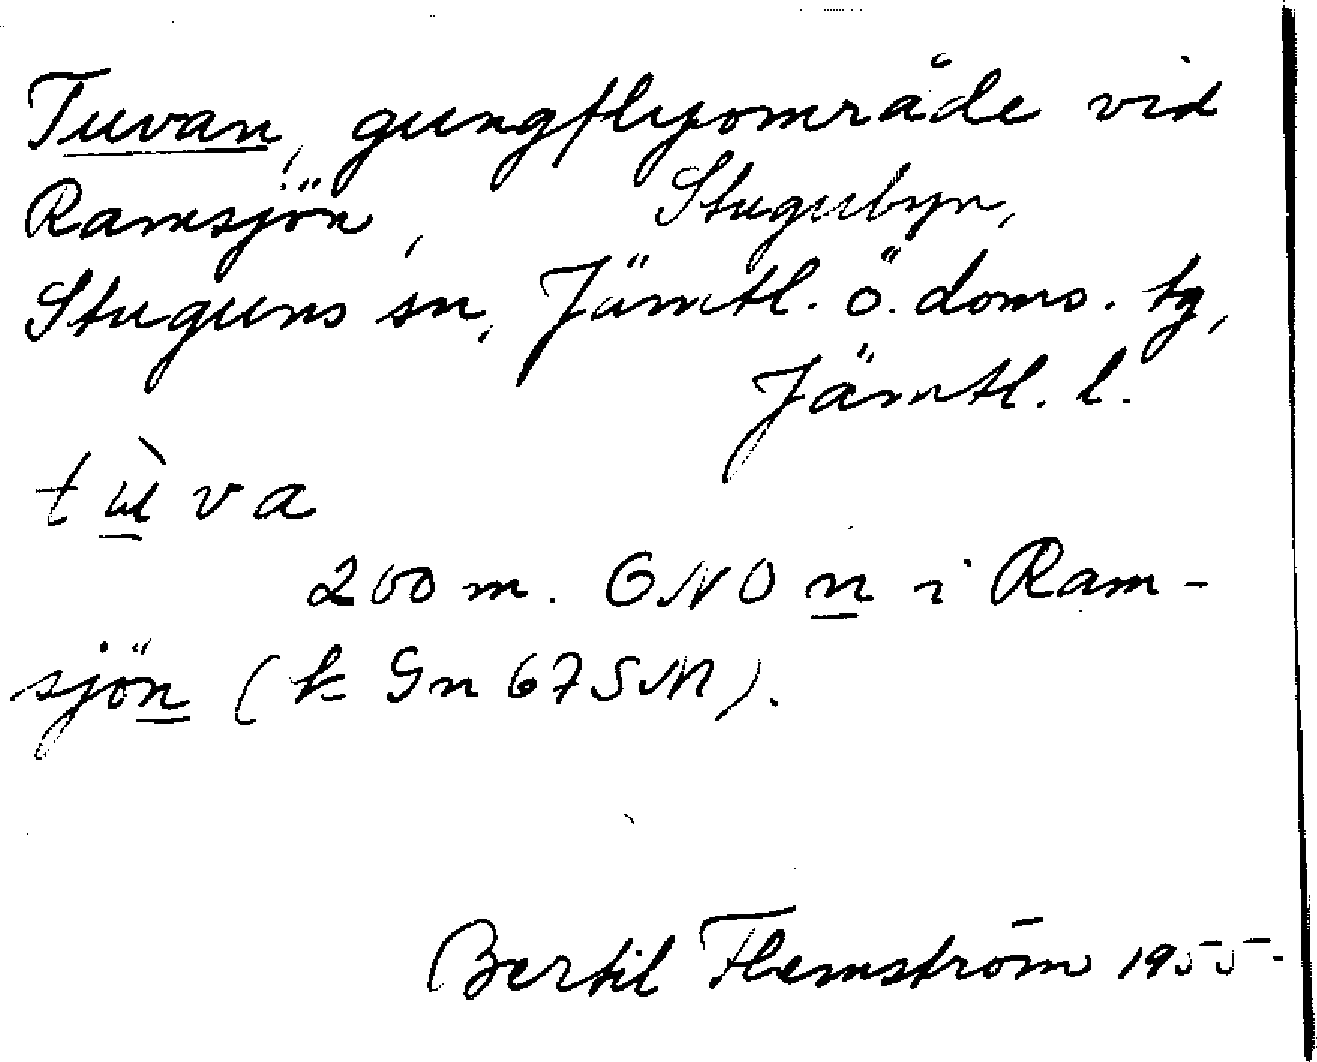 Tuvan, gungflyområde vid
Ramsjön, Stugubyn,
Stuguns sn, Jämtl. ö. doms. tg,
Jämtl. l.
tùva
200 m. ONO n i Ram-
sjön (k Gn 67 SM).
Bertil Flemström 1955.